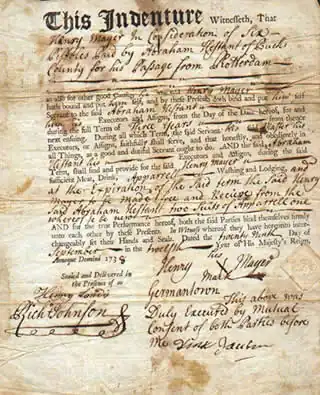 This Indenture Witnesseth, That
Henry Mayer In Consideration of Six
Pistoles Paid by Abraham Hestant of Bucks
County for his Passage from Rotterdam
as also for other good Causes, he the said Henry Mayer
hath bound and put himself, and by these Presents doth bind and put himself
Servant to the said Abraham Hestant
Executors and Assigns, from the Day of the Date hereof, for and
during the full Term of Three Years from thence
next ensuing. During all which Term, the said Servant his said Master his
Executors, or Assigns, faithfully shall serve, and that honestly and obediently in
all Things, as a good and dutiful Servant ought to do. AND the said Abraham
Hestant his Executors and Assigns, during the said
Term, shall find and provide for the said Henry Mayer
sufficient Meat, Drink, Apparel Washing and Lodging, and
at the Expiration of the Said term the Said Henry
Mayer to be made free and Recieve from the
Said Abraham Hestant two Suits Apparrell one
whereof is to be new
AND for the true Performance hereof, both the said Parties bind themselves firmly
unto each other by these Presents. In Witness whereof they have hereunto inter-
changeably set their Hands and Seals. Dated the Day of
September in the twelfth Year of His Majesty's Reign,
Annoque Domini 1738
his
Henry Mayer
Mark
Sealed and Delivered in
the Presence of us
Rich Johnson
Germantown
This above was
Duly Executed by Mutual
Consent of both the Parties before
Me Dirk Jansen